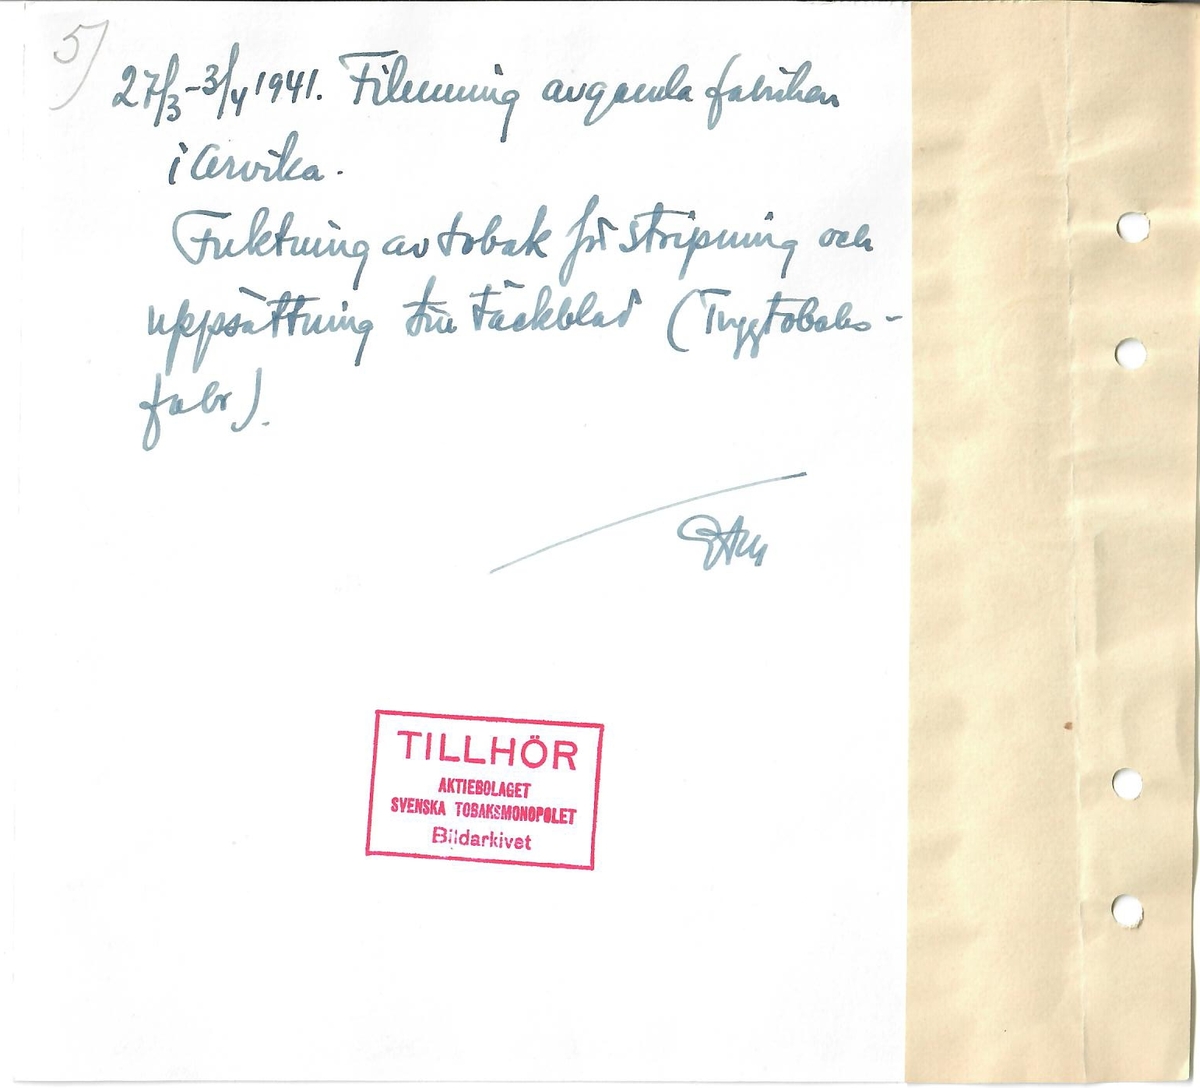 5)
27/3-3/4 1941. Filmning av gamla fabriken
i Arvika.
Fuktning av tobak för stripning och
uppsättning till täckblad (Tuggtobaks-
fabr).
TILLHÖR
AKTIEBOLAGET
SVENSKA TOBAKSMONOPOLET
Bildarkivet